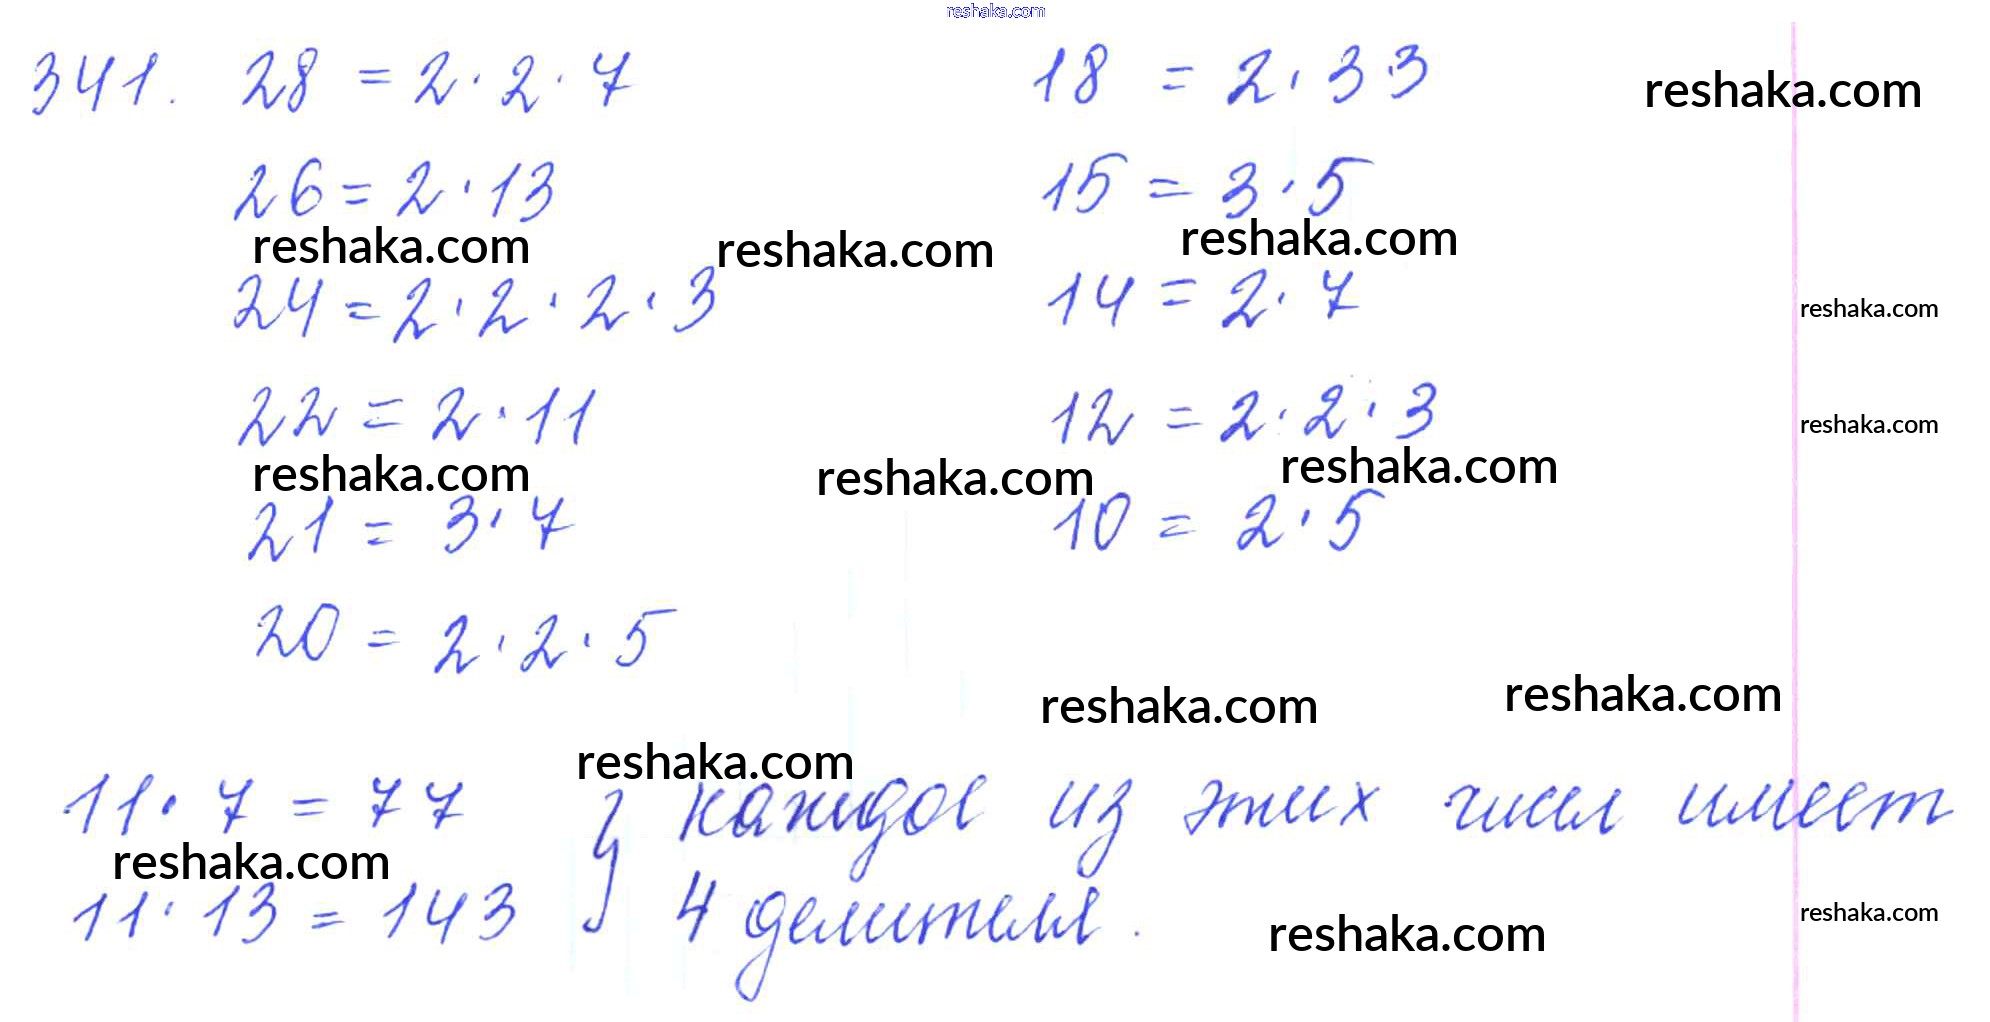 reshaka.com
341. 28 = 2 · 2 · 7 18 = 2 · 3 · 3 reshaka.com
26 = 2 · 13 15 = 3 · 5
reshaka.com reshaka.com reshaka.com
24 = 2 · 2 · 2 · 3 14 = 2 · 7 reshaka.com
22 = 2 · 11 12 = 2 · 2 · 3 reshaka.com
reshaka.com reshaka.com reshaka.com
21 = 3 · 7 10 = 2 · 5
20 = 2 · 2 · 5
reshaka.com reshaka.com
reshaka.com
11 · 7 = 77 } каждое из этих чисел имеет
reshaka.com
11 · 13 = 143 4 делителя. reshaka.com reshaka.com